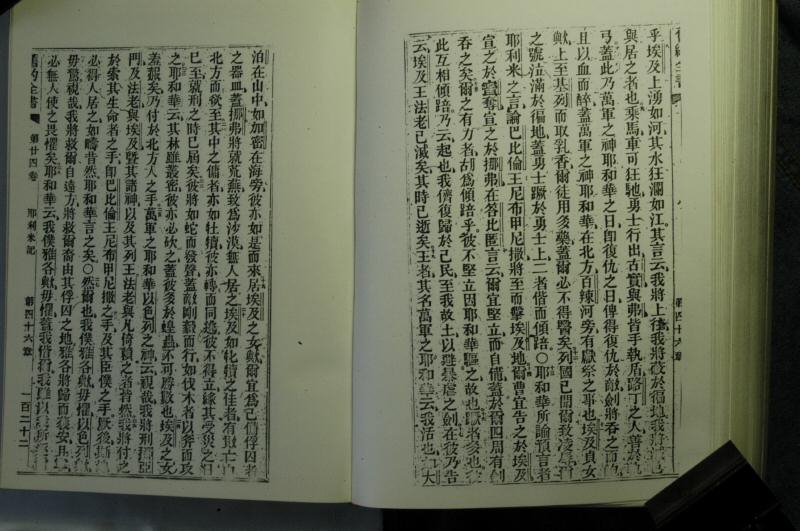 乎埃及上湧如河其水狂瀾如江其言云我將上往我將
與居之者也乘馬車可狂馳勇士行出古實與弗皆手執盾路丁之人善於
弓蓋此乃萬軍之神耶和華之日卽復仇之日俾得復仇於敵劍將吞之而
且以血而醉蓋萬軍之神耶和華在北方百辣河旁有獻祭之事也埃及貞女
歟上至基列而取乳香爾徒用多藥蓋爾必不得醫矣列國已聞爾致凌辱
之號泣滿於徧地蓋勇士蹶於勇士上二者偕而傾踣○耶和華所諭預言者
耶利米之言論巴比倫王尼布甲尼撒將至而擊埃及地爾曹宜告之於埃及
宣之於 奪宣之於挪弗在答此匿言云爾宜堅立而自備蓋於爾四周有劍
吞之矣爾之有力者胡爲傾踣乎彼不堅立因耶和華驅之故也蹶者多也
此互相傾踣乃云起也我儕復歸於己民至我故土以避暴虐之劍在彼乃告
云埃及王法老已滅矣其時已逝矣王者其名萬軍之耶和華云我活也 大
泊在山中如加密在海旁彼亦如是而來居埃及之女歟爾宜爲己備俘囚者
之器皿蓋挪弗將就荒蕪致爲沙漠無人居之埃及如牝犢之佳者有 亡
北方而欲至其中之傭者亦如牡犢彼亦轉而同逃彼不得立緣其受災之日
已至就刑之時已屆矣彼將如蛇而發聲蓋敵剛毅而行如伐木者以斧而攻
之耶和華云其林雖叢密彼亦必砍之蓋彼多於蝗蟲不可勝數也埃及之女
羞赧矣乃付於北方人之手萬軍之耶和華以色列之神云視哉我將刑
門及法老與埃及曁其諸神以及其列王法老與凡倚賴之者皆然我將付之
於索其生命者之手卽巴比倫王尼布甲尼撒之手及其臣僕之手厥後
必得人居之如疇昔然耶和華言之矣○然爾也我僕雅各歟毋懼以色列
毋驚視哉我將救爾自遠方將救爾裔由其俘囚之地雅各將歸而獲安
必無人使之畏懼矣耶和華云我僕雅各歟毋懼蓋我偕
舊約全書 第廿四卷 耶利米記 第四十六章 一百二十二